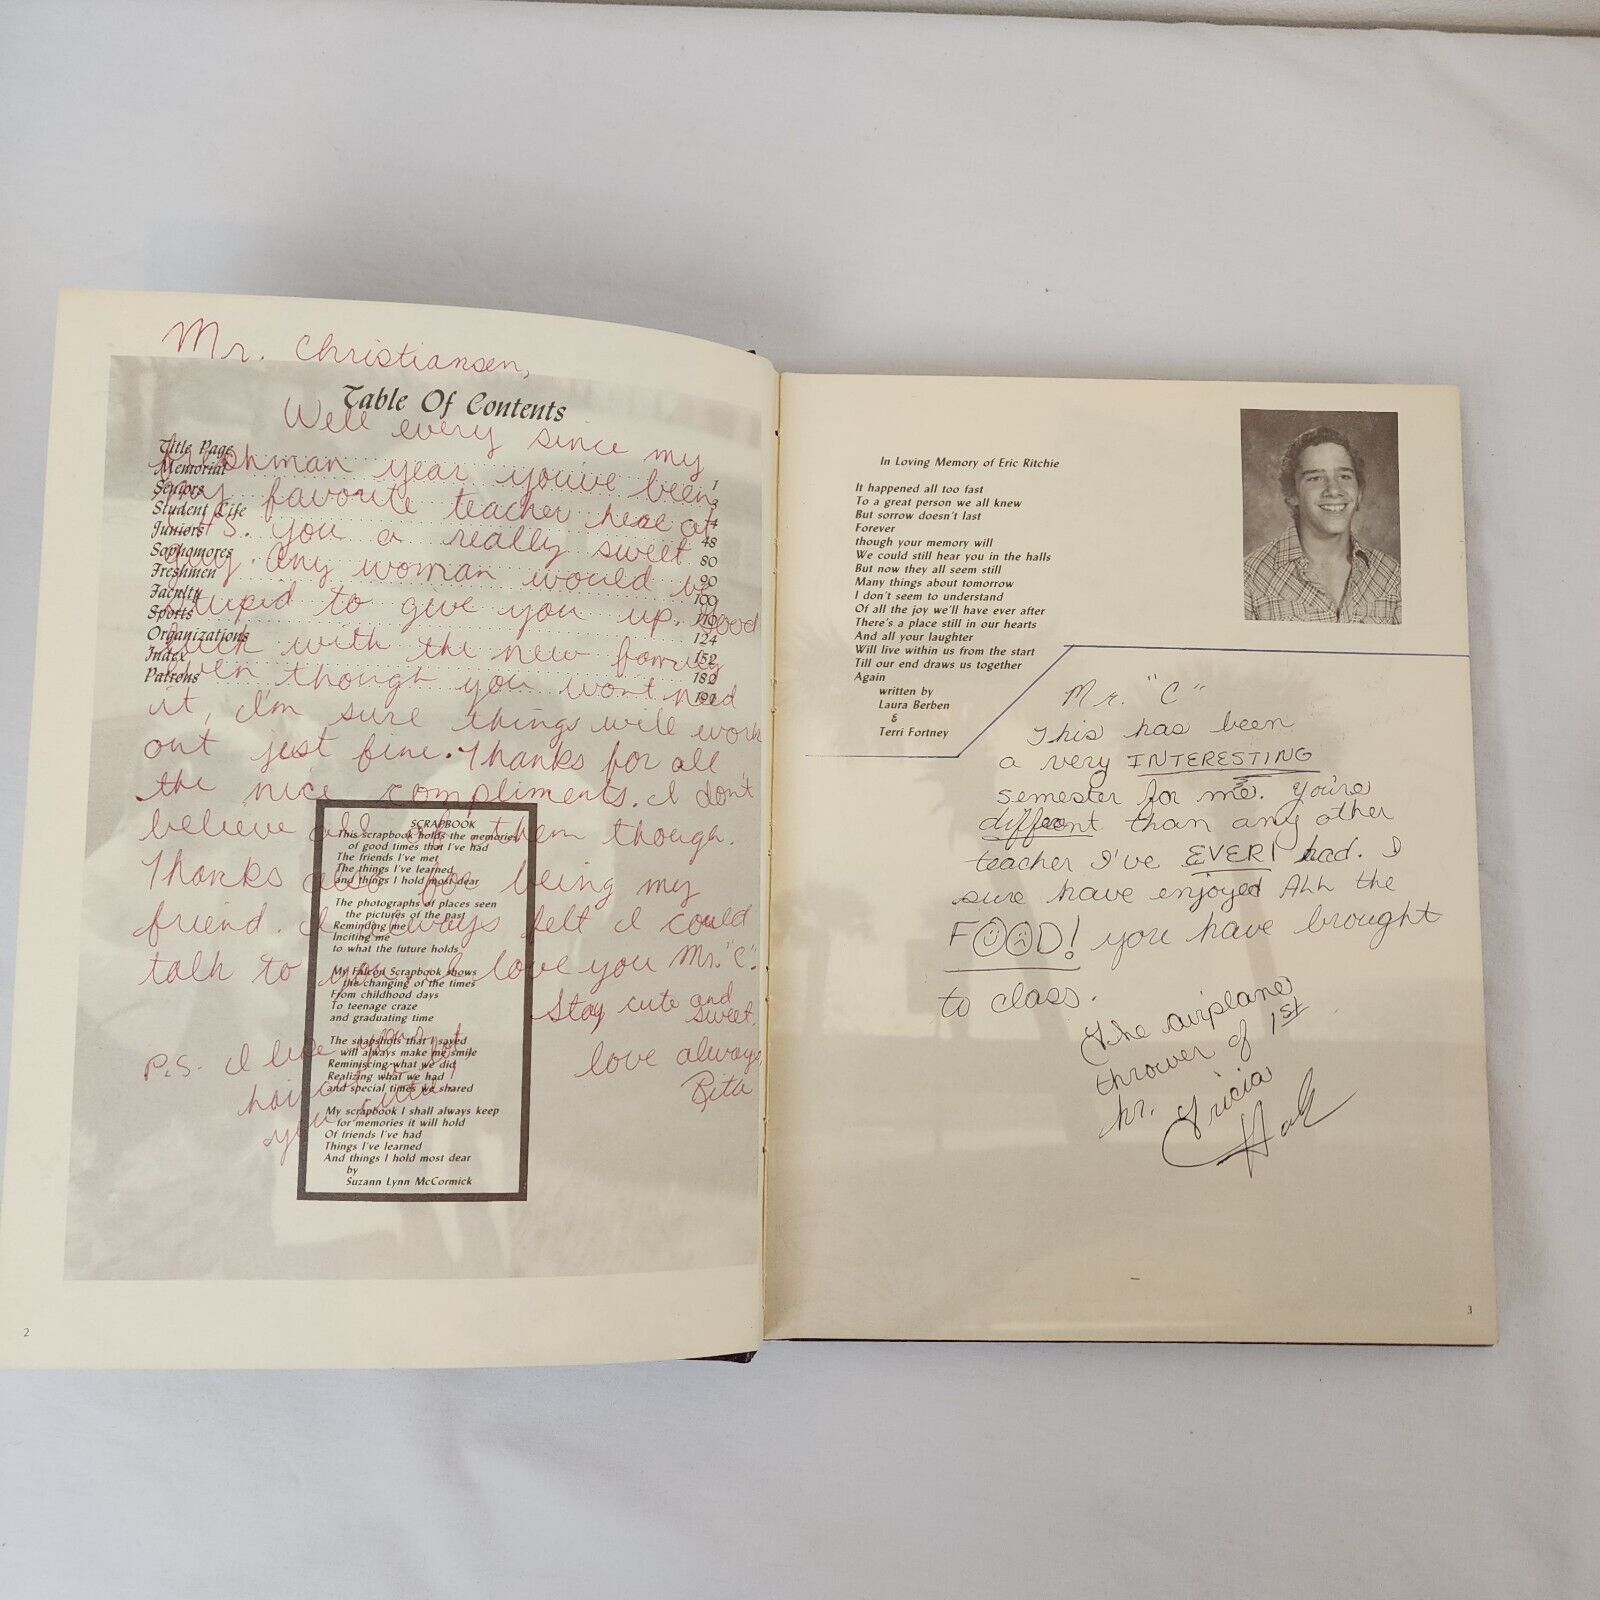 Mr. Christiansen,
Well every since my
freshman year you've been
my favorite teacher here at
You a really sweet
guy. Any woman would be
stupid to give you up. Good
luck with the new family
even though you wont need
it, I'm sure things will work
out just fine. Thanks for all
the nice compliments. I don't
believe all of them though.
Thanks also for being my
friend. I always felt I could
talk to you. I love you Mr. "C".
Stay cute and
sweet.
love always,
Rita
P.S. I like your
Table Of Contents
Title Page 1
Memorial 3
Seniors 4
Student Life 48
Juniors 80
Sophomores 90
Freshmen 100
Faculty 110
Sports 124
Organizations 152
Index 182
Patrons
SCRAPBOOK
This scrapbook holds the memories
of good times that I've had
The friends I've met
The things I've learned
and things I hold most dear
The photographs of places seen
the pictures of the past
Reminding me
Inciting me
to what the future holds
My Falcon Scrapbook shows
the changing of the times
From childhood days
To teenage craze
and graduating time
The snapshots that I saved
will always make me smile
Reminiscing what we did
Realizing what we had
and special times we shared
My scrapbook I shall always keep
for memories it will hold
Of friends I've had
Things I've learned
And things I hold most dear
by
Suzann Lynn McCormick
2
In Loving Memory of Eric Ritchie
It happened all too fast
To a great person we all knew
But sorrow doesn't last
Forever
though your memory will
We could still hear you in the halls
But now they all seem still
Many things about tomorrow
I don't seem to understand
Of all the joy we'll have ever after
There's a place still in our hearts
And all your laughter
Will live within us from the start
Till our end draws us together
Again
written by
Laura Berben
&
Terri Fortney
Mr. "C"
This has been
a very INTERESTING
semester for me. You're
different than any other
teacher I've EVER! had. I
sure have enjoyed ALL the
FOOD! you have brought
to class.
The airplane
thrower of 1st
hr. Tricia
3